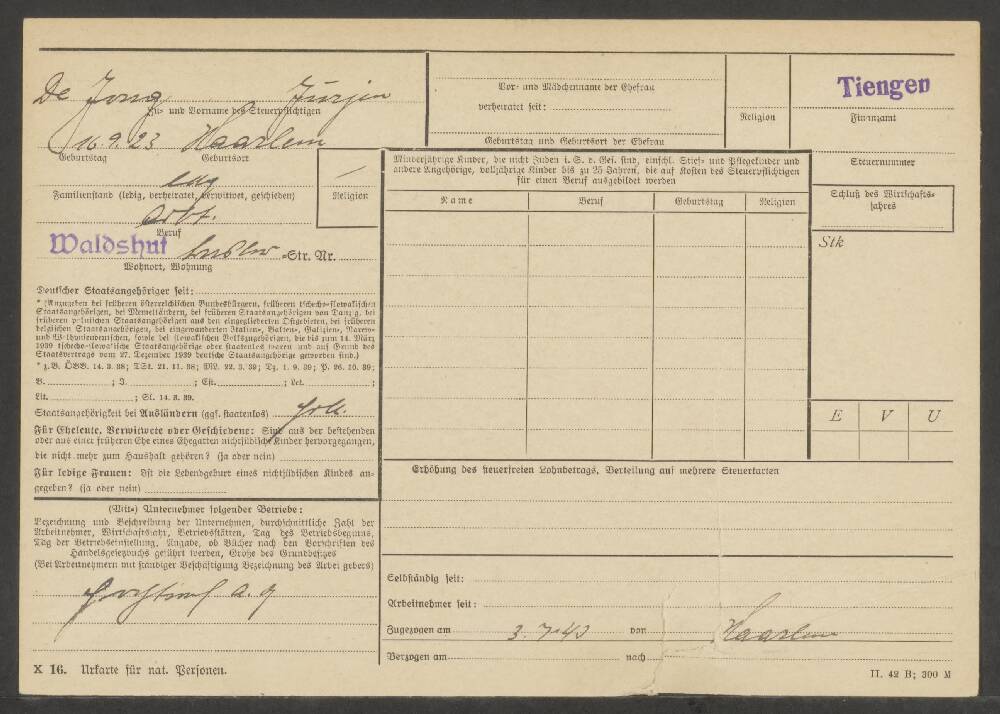 De Jong Jurjen
Zu- und Vorname des Steuerpflichtigen
16.9.23 Haarlem
Geburtstag Geburtsort
led
Familienstand (ledig, verheiratet, verwitwet, geschieden)
Arbt.
Beruf
Waldshut -Str. Nr.
Wohnort, Wohnung
Religion
Deutscher Staatsangehöriger seit:
* (Anzugeben bei früheren österreichischen Bundesbürgern, früheren tschecho-slowakischen
Staatsangehörigen, bei Memelländern, bei früheren Staatsangehörigen von Danzig, bei
früheren polnischen Staatsangehörigen aus den eingegliederten Ostgebieten, bei früheren
belgischen Staatsangehörigen, bei eingewanderten Italien-, Balten-, Galizien-, Narew-
und Wolhyniendeutschen, sowie bei slowakischen Volkszugehörigen, die bis zum 14. März
1939 tschecho-slowakische Staatsangehörige oder staatenlos waren und auf Grund des
Staatsvertrags vom 27. Dezember 1939 deutsche Staatsangehörige geworden sind.)
* z.B. ÖBB. 14. 3. 38; TSt. 21. 11. 38; ML. 22. 3. 39; Dz. 1. 9. 39; P. 26. 10. 39;
B. ; I. ; Est. ; Let. ;
Lit. ; Sl. 14. 3. 39.
Staatsangehörigkeit bei Ausländern (ggf. staatenlos) Holl.
Für Eheleute, Verwitwete oder Geschiedene: Sind aus der bestehenden
oder aus einer früheren Ehe eines Ehegatten nichtjüdische Kinder hervorgegangen,
die nicht mehr zum Haushalt gehören? (ja oder nein)
Für ledige Frauen: Ist die Lebendgeburt eines nichtjüdischen Kindes an-
gegeben? (ja oder nein)
(Mit-) Unternehmer folgender Betriebe:
Bezeichnung und Beschreibung der Unternehmen, durchschnittliche Zahl der
Arbeitnehmer, Wirtschaftssatz, Betriebsstätten, Tag des Betriebsbeginns,
Tag der Betriebseinstellung, Angabe, ob Bücher nach den Vorschriften des
Handelsgesetzbuchs geführt werden, Größe des Grundbesitzes
(Bei Arbeitnehmern mit ständiger Beschäftigung Bezeichnung des Arbeitgebers)
A. G
X 16. Urkarte für nat. Personen.
Vor- und Mädchenname der Ehefrau
verheiratet seit:
Geburtstag und Geburtsort der Ehefrau
Religion
Tiengen
Finanzamt
Steuernummer
Schluß des Wirtschafts-
jahres
Minderjährige Kinder, die nicht Juden i. S. d. Ges. sind, einschl. Stief- und Pflegekinder und
andere Angehörige, volljährige Kinder bis zu 25 Jahren, die auf Kosten des Steuerpflichtigen
für einen Beruf ausgebildet werden
Name Beruf Geburtstag Religion
Stk
E V U
Erhöhung des steuerfreien Lohnbetrags, Verteilung auf mehrere Steuerkarten
Selbständig seit:
Arbeitnehmer seit:
Zugezogen am 3.7.43 von Haarlem
Verzogen am nach
II. 42 B; 300 M